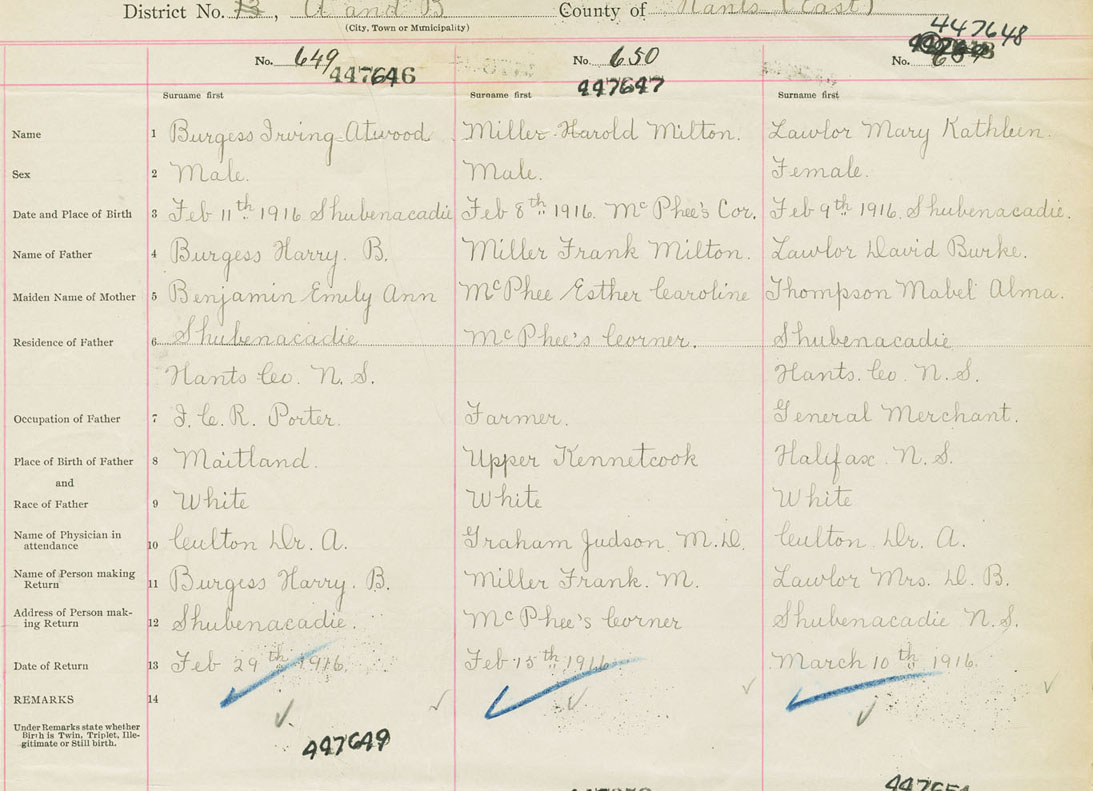 District No. 13, A and B County of Hants (East)
(City, Town or Municipality)
447648
No. 649 No. 650 No.
447646 447647
Surname first Surname first Surname first
Name 1 Burgess Irving Atwood Miller Harold Milton. Lawlor Mary Kathleen.
Sex 2 Male. Male. Female.
Date and Place of Birth 3 Feb 11th 1916 Shubenacadie Feb 8th 1916. McPhee's Cor. Feb 9th 1916. Shubenacadie.
Name of Father 4 Burgess Harry. B. Miller Frank Milton. Lawlor David Burke.
Maiden Name of Mother 5 Benjamin Emily Ann McPhee Esther Caroline Thompson Mabel Alma.
Residence of Father 6 Shubenacadie McPhee's Corner. Shubenacadie
Hants Co. N. S. Hants. Co. N. S.
Occupation of Father 7 I. C. R. Porter. Farmer. General Merchant.
Place of Birth of Father 8 Maitland. Upper Kennetcook Halifax. N. S.
and
Race of Father 9 White White White
Name of Physician in
attendance 10 Culton Dr. A. Graham Judson M.D. Culton Dr. A.
Name of Person making
Return 11 Burgess Harry. B. Miller Frank. M. Lawlor Mrs. D. B.
Address of Person mak-
ing Return 12 Shubenacadie. McPhee's Corner Shubenacadie N. S.
Date of Return 13 Feb 29th 1916. Feb 15th 1916 March 10th 1916.
REMARKS 14
Under Remarks state whether
Birth is Twin, Triplet, Ille-
gitimate or Still birth.
447649